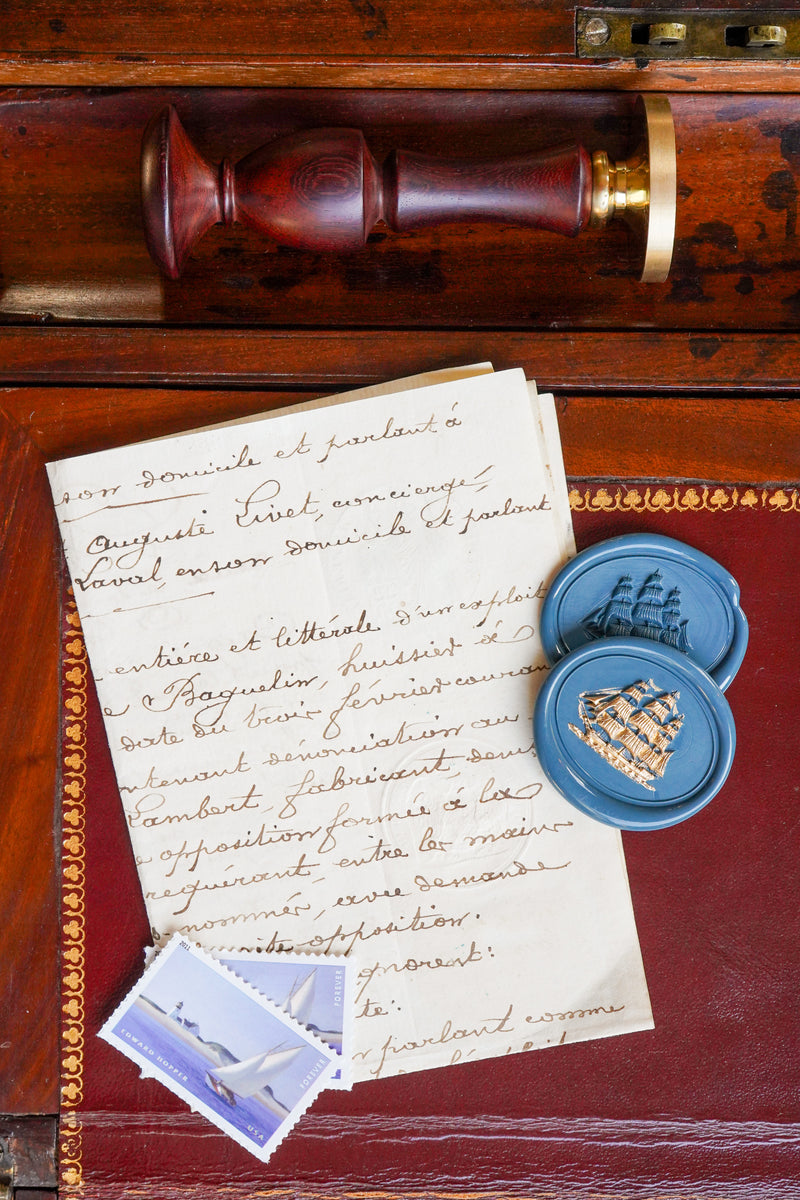 son domicile et parlant á
Auguste Livet, concierge,
Laval, en son domicile et parlant
entiére et littérale d'un exploit
Baguelin, huissier á
date du trois février couran
ntenant dénonciation au
Lambert, fabricant, demi
opposition formée á la
requérant, entre les mains
nommé, avec demande
opposition.
gnorent:
te:
parlant comme
2011
EDWARD HOPPER
FOREVER
USA
FOREVER